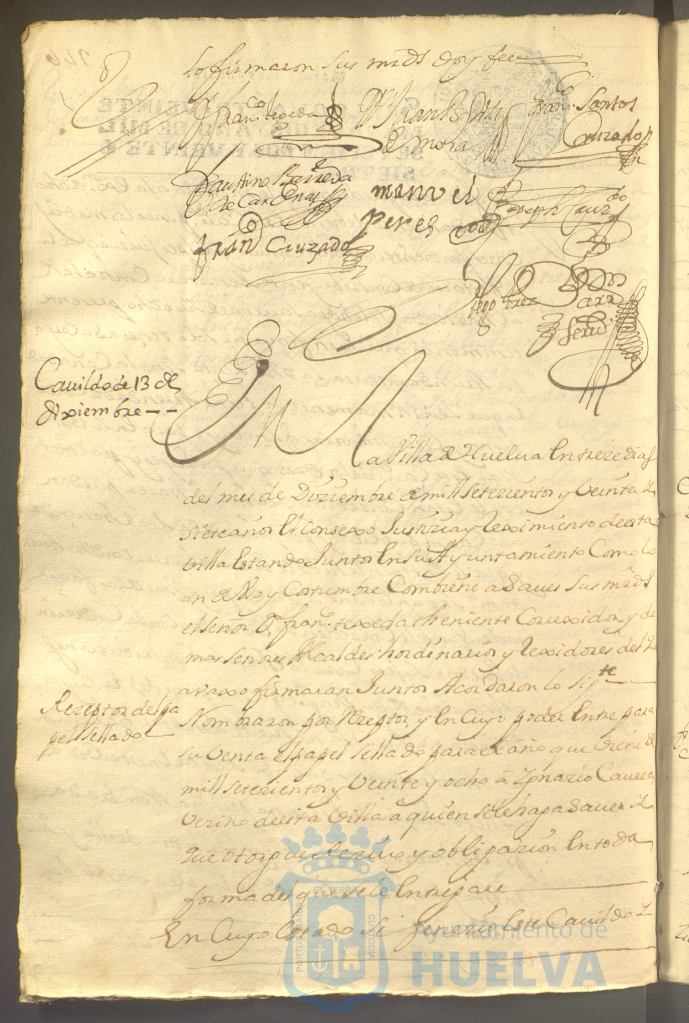 lo firmaron sus mrds doy fee
Franco texeda
Franco Santos
Cruzado
de Mora
Faustino Barreda
de Cardenas
manuel
perez
Joseph Cruzdo
Fran Cruzado
Cavildo de 13 de
diziembre - -
En la Villa de Huelva En treze dias
del mes de Diziembre de mill setezientos y Veinte y
siete años El Consexo Justizia y Reximiento de esta
villa Estando Juntos En su Ayuntamiento Como lo
an de Uso y Costumbre Combiene a Saver Sus mrds
el Señor Dn franco texeda theniente Correxidor y de
mas Señores Alcaldes hordinarios y Rexidores del que
avaxo firmaran Juntos Acordaron lo sigte
Rezeptor del pa
pel sellado
Nombraron por Rezeptor y En Cuyo poder Entre para
su Venta el papel sellado para el año que Viene de
mill setezientos y Veinte y ocho a Ygnazio Cavera
Vezino de esta Villa a quien se le haga Saver y
que otorgue Rezivo y obligazion En toda
forma del que se le Entregare
En Cuyo Estado Se fenezio Este Cavildo y
Ayuntamiento de
HUELVA